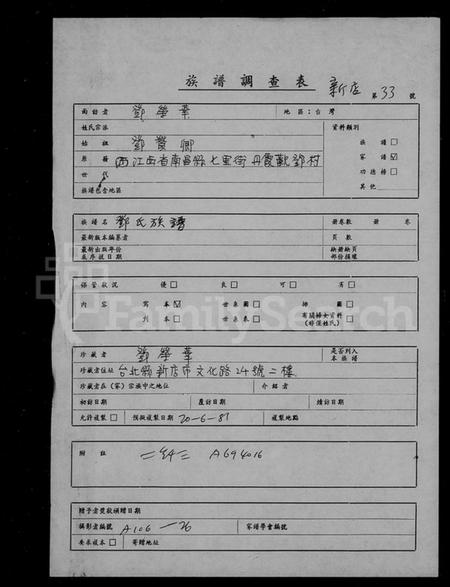 族譜調查表 新店 第 33 號
面訪者 鄧榮華 地區：台灣
姓氏宗派 資料類別
始祖 鄧 卿 族譜 □
原籍 江西省南昌縣七里街丹霞觀鄧村 家譜 ☑
世代 功德榜 □
族譜包含地區 其他
族譜名 鄧氏族譜 冊卷數 冊 卷
最新版本編纂者 頁數
最新出版年份 缺冊缺頁
或序拔日期 部份損壞
保管狀況 優 □ 良 □ 可 □ 有 □
內容 寫本 ☑ 世系圖 □ 插圖 □
刊本 □ 世系表 □ 有關婦女資料 □
(非僅姓氏)
珍藏者 鄧榮華 是否列入
本族譜
珍藏者住址 台北縣新店市文化路24號二樓
珍藏者在(家)宗族中之地位 介紹者
初訪日期 覆訪日期 續訪日期
允許複製 □ 預擬複製日期 20-6-87 複製地點
附註 A694016
贈予者獎狀頒贈日期
攝影者編號 A106-26 家譜學會編號
要求複本 □ 寄贈地址
FamilySearch